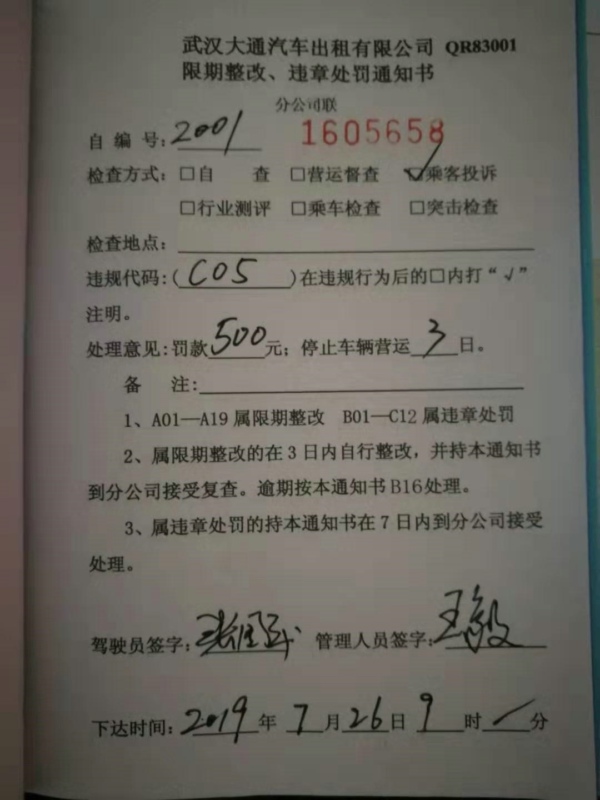 武汉大通汽车出租有限公司 QR83001
限期整改、违章处罚通知书
分公司联
自 编 号: 2001 1605658
检查方式: □自 查 □营运督查 ☑乘客投诉
□行业测评 □乘车检查 □突击检查
检查地点:
违规代码:( C05 )在违规行为后的□内打“√”
注明。
处理意见:罚款 500 元；停止车辆营运 3 日。
备 注:
1、A01—A19 属限期整改 B01—C12 属违章处罚
2、属限期整改的在 3 日内自行整改，并持本通知书
到分公司接受复查。逾期按本通知书 B16 处理。
3、属违章处罚的持本通知书在 7 日内到分公司接受
处理。
驾驶员签字: 管理人员签字: 王毅
下达时间: 2019 年 7 月 26 日 9 时 分